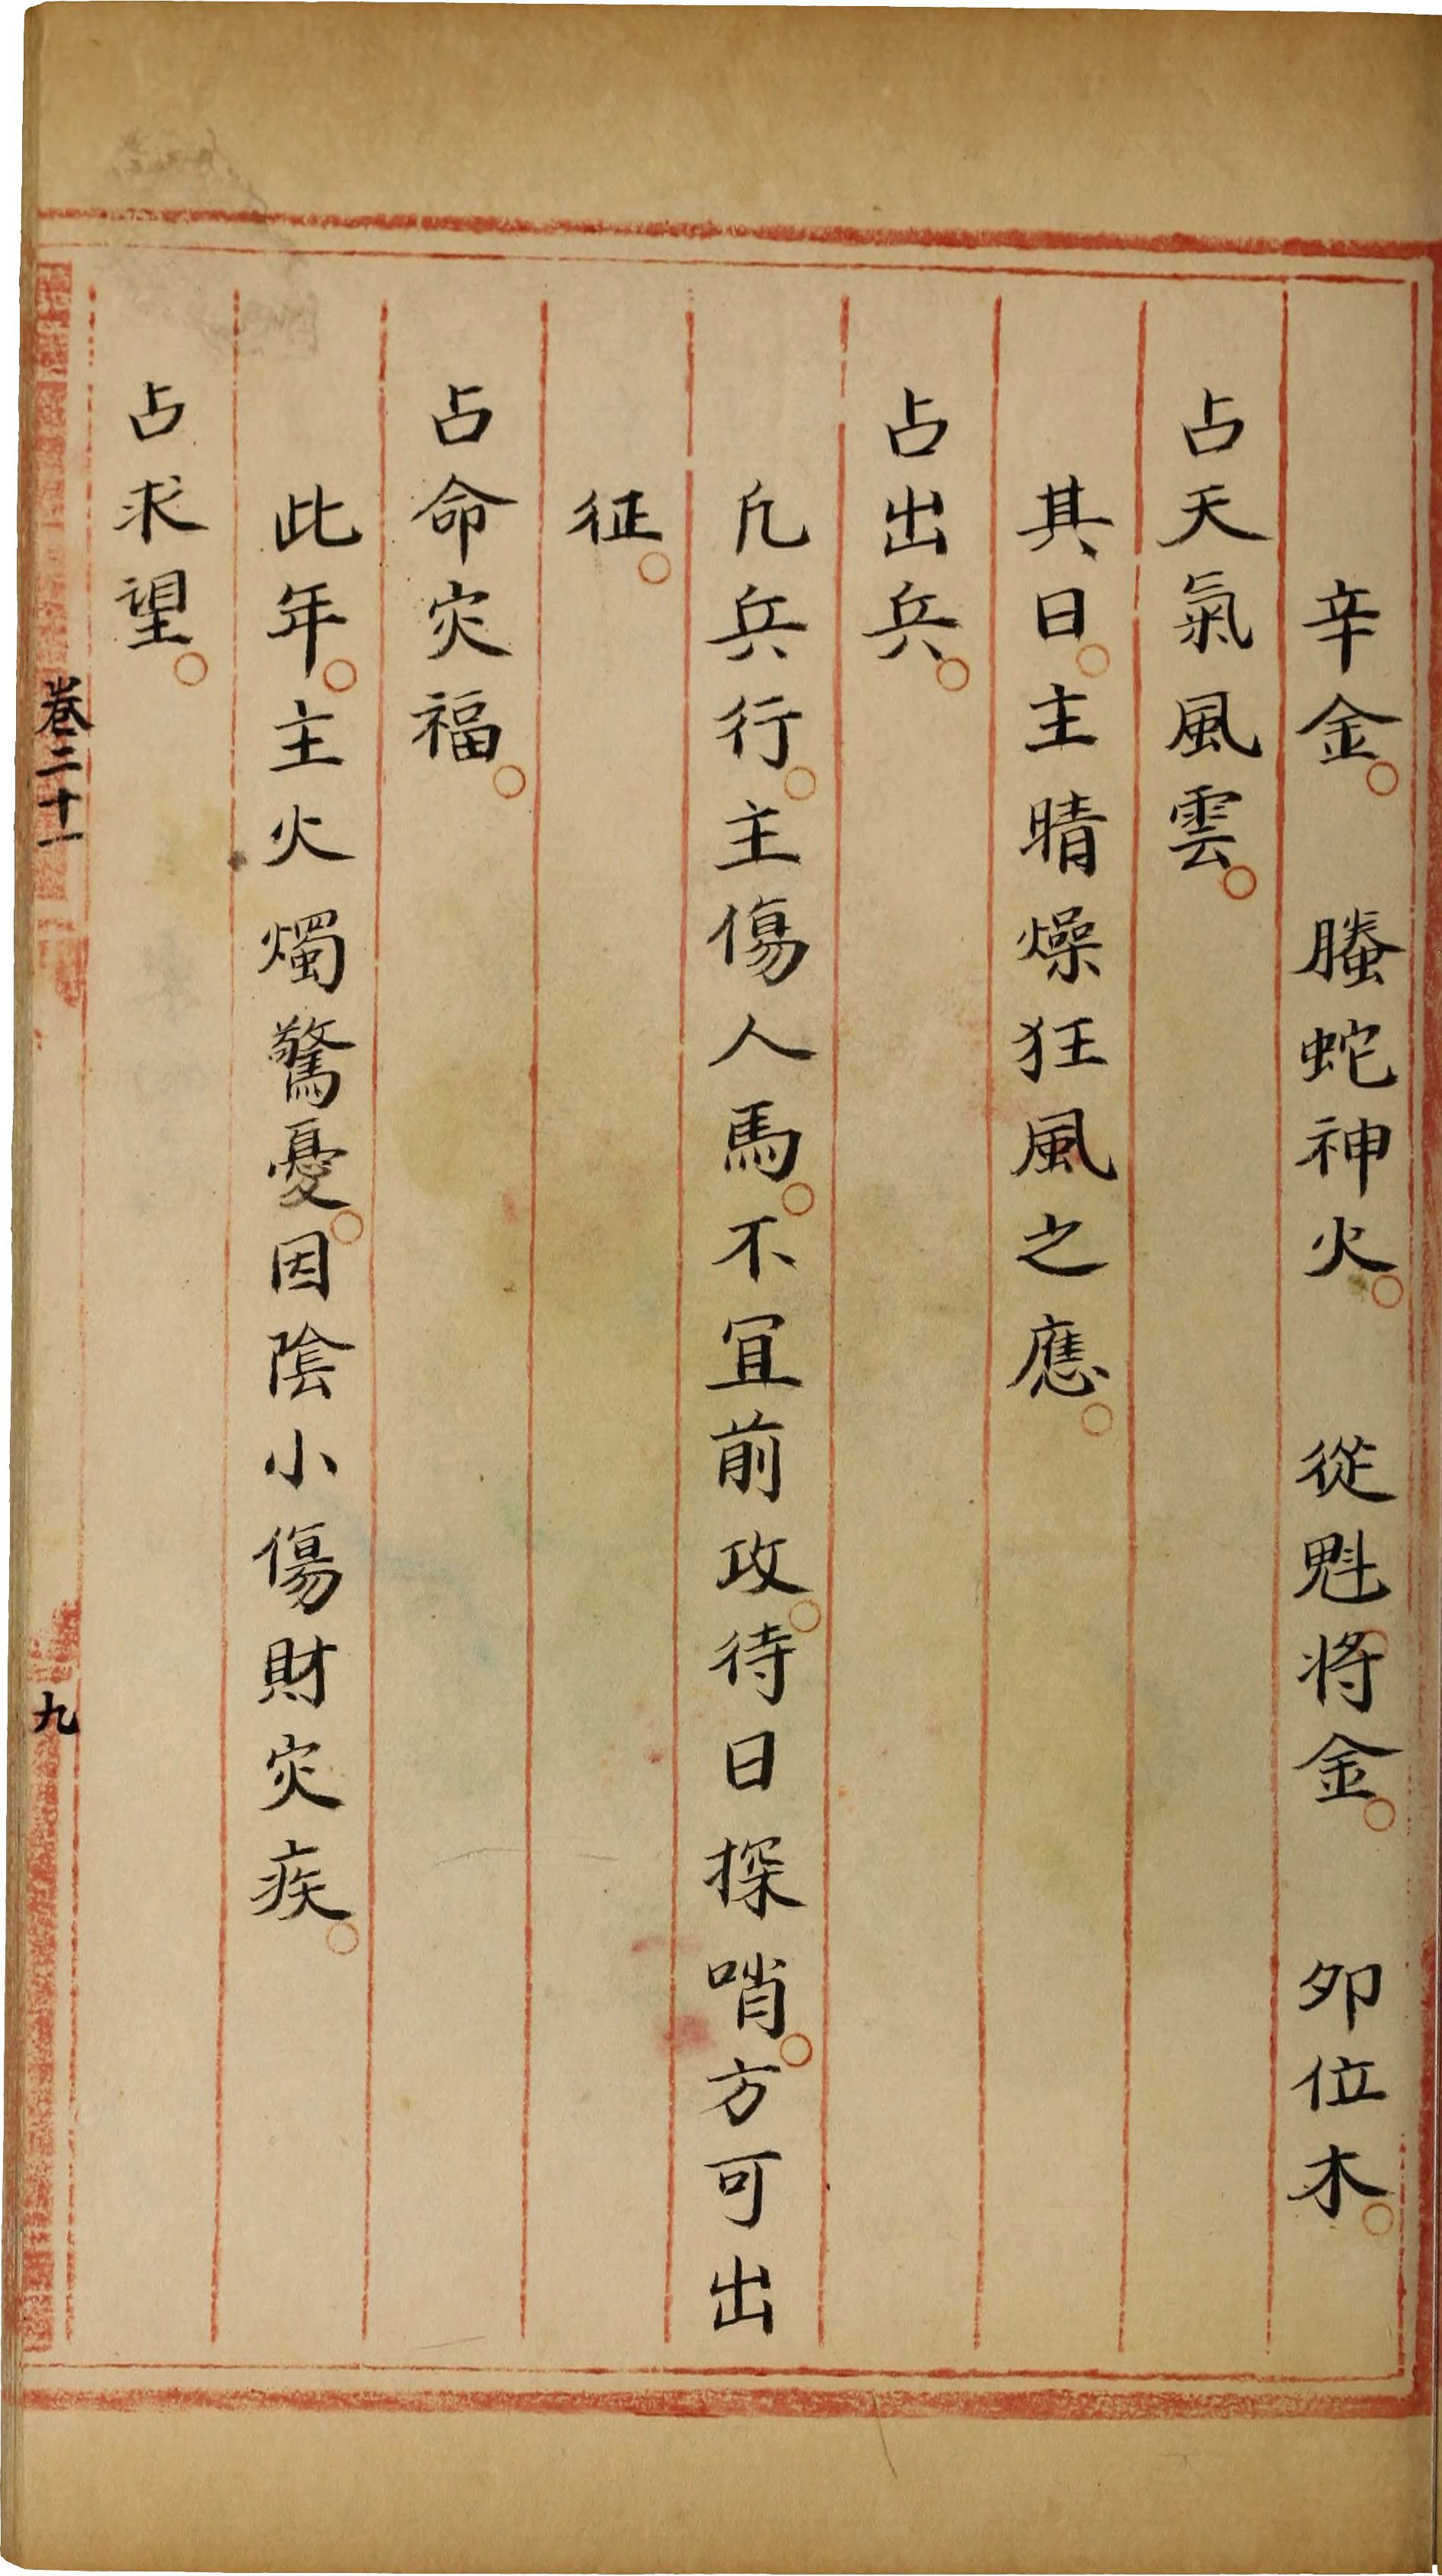 辛金。　螣蛇神火。　從魁將金。　夘位木。
占天氣風雲。
其日。主晴燥狂風之應。
占出兵。
凢兵行。主傷人馬。不宜前攻。待日探哨。方可出
征。
占命灾福。
此年。主火燭驚憂。因陰小傷財灾疾。
占求望。
卷二十一
九